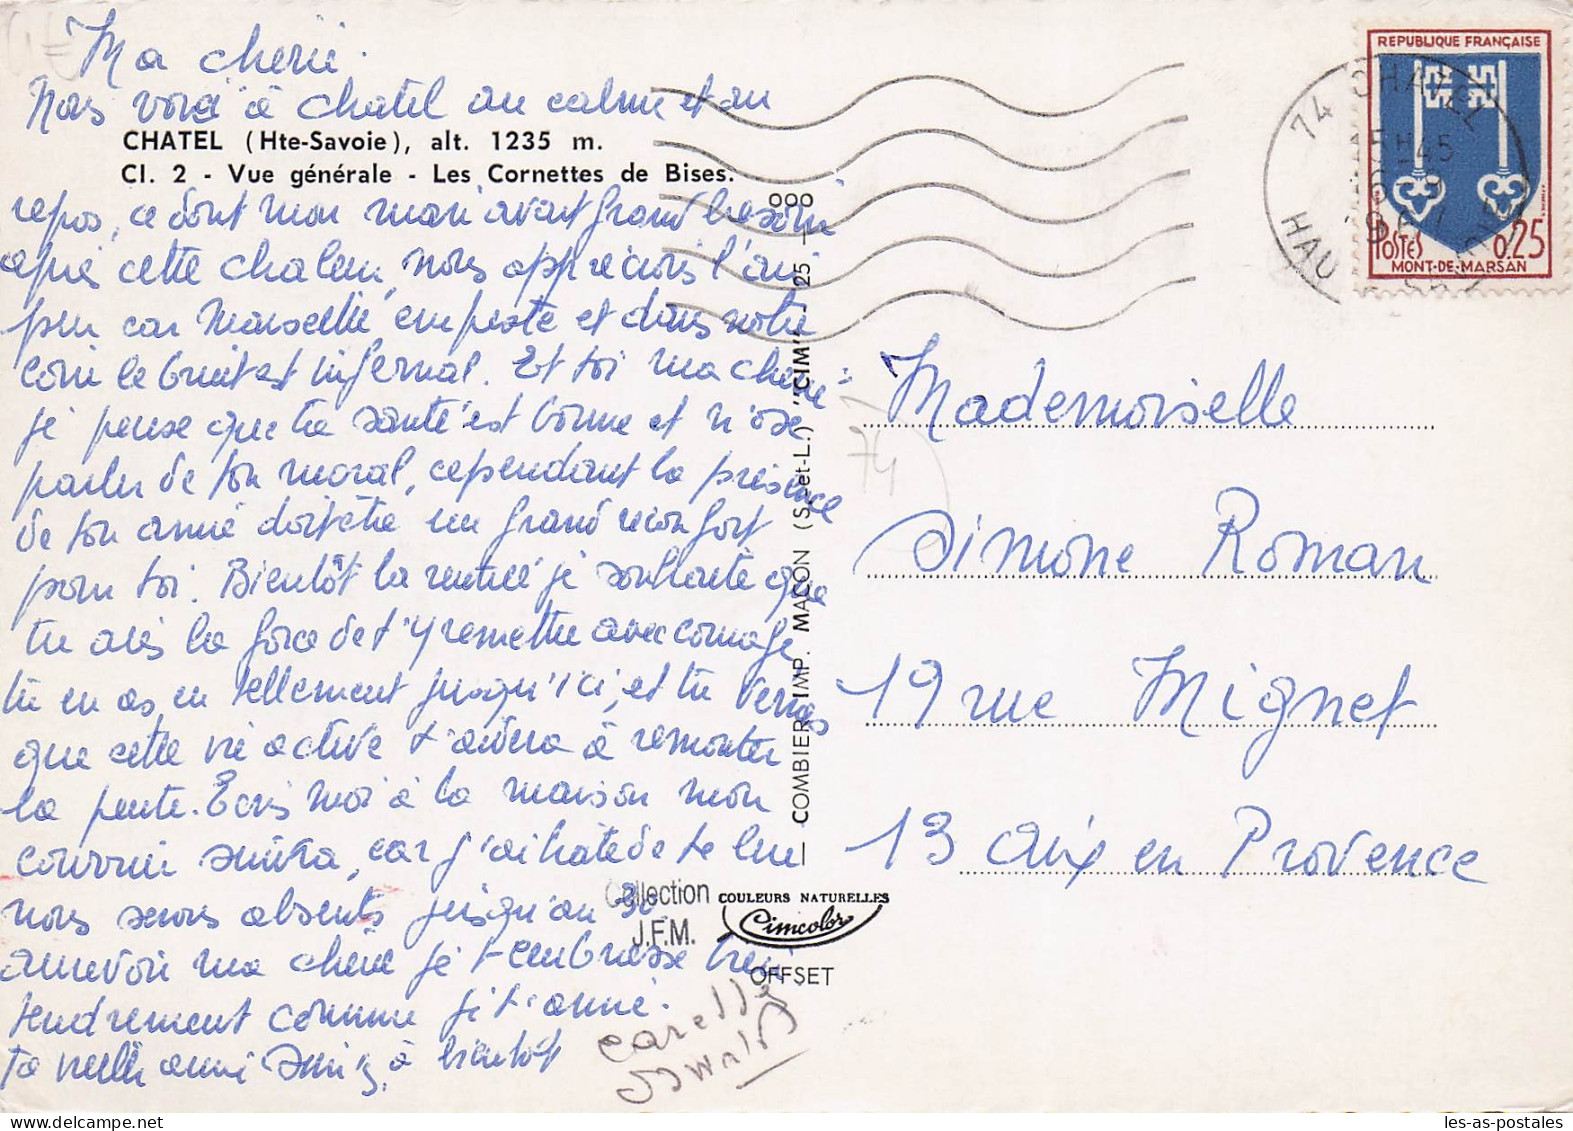 Ma chérie.
Nous voici à Chatel au calme et au
CHATEL (Hte-Savoie), alt. 1235 m.
Cl. 2 - Vue générale - Les Cornettes de Bises.
repos, ce dont mon mari avait grand besoin
après cette chaleur, nous apprécions l'air
pur car Marseille empeste et dans notre
coin le bruit est infernal. Et toi ma chérie
je pense que ta santé est bonne et n'ose
parler de ton moral, cependant la présence
de ton amie doit être un grand réconfort
pour toi. Bientôt la rentrée je souhaite que
tu aies la force de t'y remettre avec courage
tu en as eu tellement jusqu'ici, et tu verras
que cette vie active t'aidera à remonter
la pente. Ecris moi à la maison mon
courrier suivra, car j'ai hâte de te lire
nous serons absents jusqu'au 30.
aurevoir ma chérie je t'embrasse bien
tendrement comme je t'aime.
ta vieille amie à bientôt
OOO
25
COMBIER IMP. MACON (S.-et-L.) "CIM"
Collection
J.F.M.
COULEURS NATURELLES
Cimcolor
OFFSET
74
REPUBLIQUE FRANÇAISE
POSTES 0.25
MONT-DE-MARSAN
74 CHATEL
15H45
Mademoiselle
Simone Roman
19 rue Mignet
13 Aix en Provence
les-as-postales.com